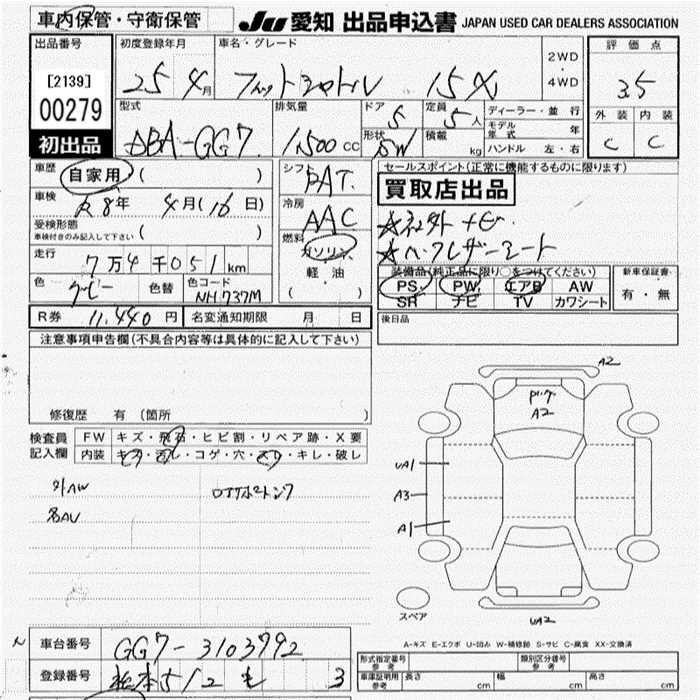 車内保管・守衛保管 JU 愛知 出品申込書 JAPAN USED CAR DEALERS ASSOCIATION
出品番号 初度登録年月 車名・グレード 評価点
[2139] 25 4月 フィットシャトル 15X 2WD・4WD 3.5
00279 型式 排気量 ドア 定員 ディーラー・並行 外装 内装
初出品 DBA-GG7 1,500cc 5 5人 モデル年式 年 C C
形状 SW 積載 kg ハンドル 左・右
車歴 自家用( ) シフト FAT セールスポイント(正常に機能するものに限ります)
車検 R8年 4月(16日) 冷房 AAC 買取店出品
受検形態 車検付きのみ記入して下さい ( ) 燃料 ガソリン ☆社外ナビ
走行 7万4千051km 軽油 ( ) ☆ハーフレザーシート
色 グレー 色替 色コード NH737M 装備品(純正品に限り○をつけてください) 新車保証書
PS PW エアB AW 有・無
SR ナビ TV カワシート
R券 11,440円 名変通知期限 月 日 後日品
注意事項申告欄(不具合内容等は具体的に記入して下さい)
修復歴 有(箇所 )
検査員記入欄 FW キズ・飛石・ヒビ割・リペア跡・X要
内装 キズ・汚レ・コゲ・穴・スリ・キレ・破レ
外AW
A2
A2
UA1
A3
A1
UA2
スペア
A-キズ E-エクボ U-凹み W-補修跡 S-サビ C-腐食 XX-交換済
車台番号 GG7-3103792 形式指定番号 参考 類別区分番号 参考
登録番号 松本512 3 車庫証明用 参考 長さ cm 幅 cm 高さ cm